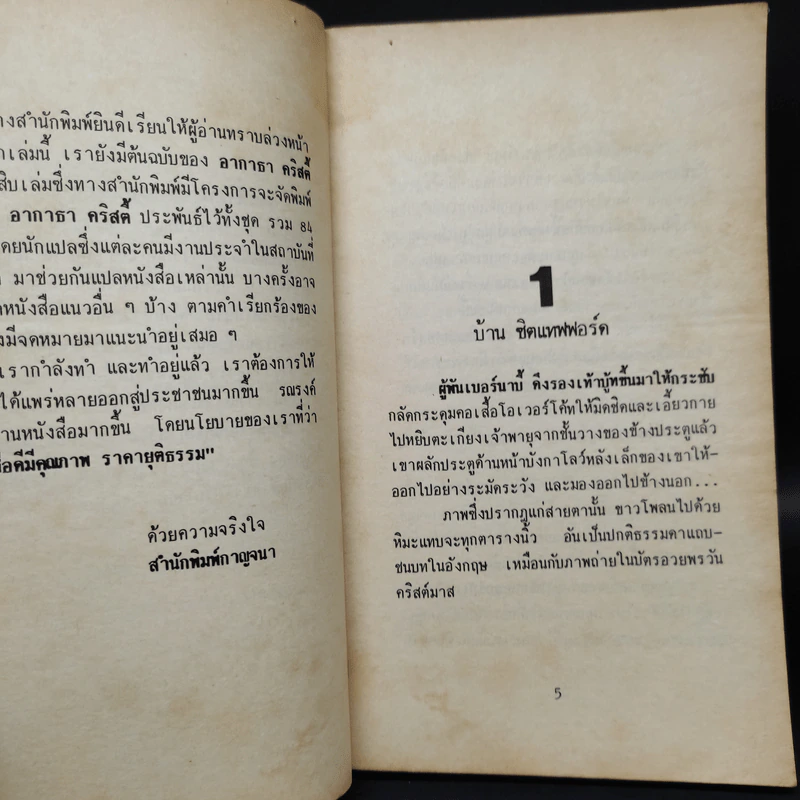 างสำนักพิมพ์ยินดีเรียนให้ผู้อ่านทราบล่วงหน้า
กเล่มนี้ เรายังมีต้นฉบับของ อากาธา คริสตี้
สิบเล่มซึ่งทางสำนักพิมพ์มีโครงการจะจัดพิมพ์
อากาธา คริสตี้ ประพันธ์ไว้ทั้งชุด รวม 84
ดยนักแปลซึ่งแต่ละคนมีงานประจำในสถาบันที่
มาช่วยกันแปลหนังสือเหล่านั้น บางครั้งอาจ
หนังสือแนวอื่น ๆ บ้าง ตามคำเรียกร้องของ
งมีจดหมายมาแนะนำอยู่เสมอ ๆ
เรากำลังทำ และทำอยู่แล้ว เราต้องการให้
ได้แพร่หลายออกสู่ประชาชนมากขึ้น รณรงค์
านหนังสือมากขึ้น โดยนโยบายของเราที่ว่า
อดีมีคุณภาพ ราคายุติธรรม"
ด้วยความจริงใจ
สำนักพิมพ์กาญจนา
1
บ้าน ซิตแทฟฟอร์ด
ผู้พันเบอร์นาบี้ ดึงรองเท้าบู้ทขึ้นมาให้กระชับ
กลัดกระดุมคอเสื้อโอเวอร์โค้ทให้มิดชิดและเอี้ยวกาย
ไปหยิบตะเกียงเจ้าพายุจากชั้นวางของข้างประตูแล้ว
เขาผลักประตูด้านหน้าบังกาโลว์หลังเล็กของเขาให้-
ออกไปอย่างระมัดระวัง และมองออกไปข้างนอก...
ภาพซึ่งปรากฏแก่สายตานั้น ขาวโพลนไปด้วย
หิมะแทบจะทุกตารางนิ้ว อันเป็นปกติธรรมดาแถบ-
ชนบทในอังกฤษ เหมือนกับภาพถ่ายในบัตรอวยพรวัน
คริสต์มาส
5